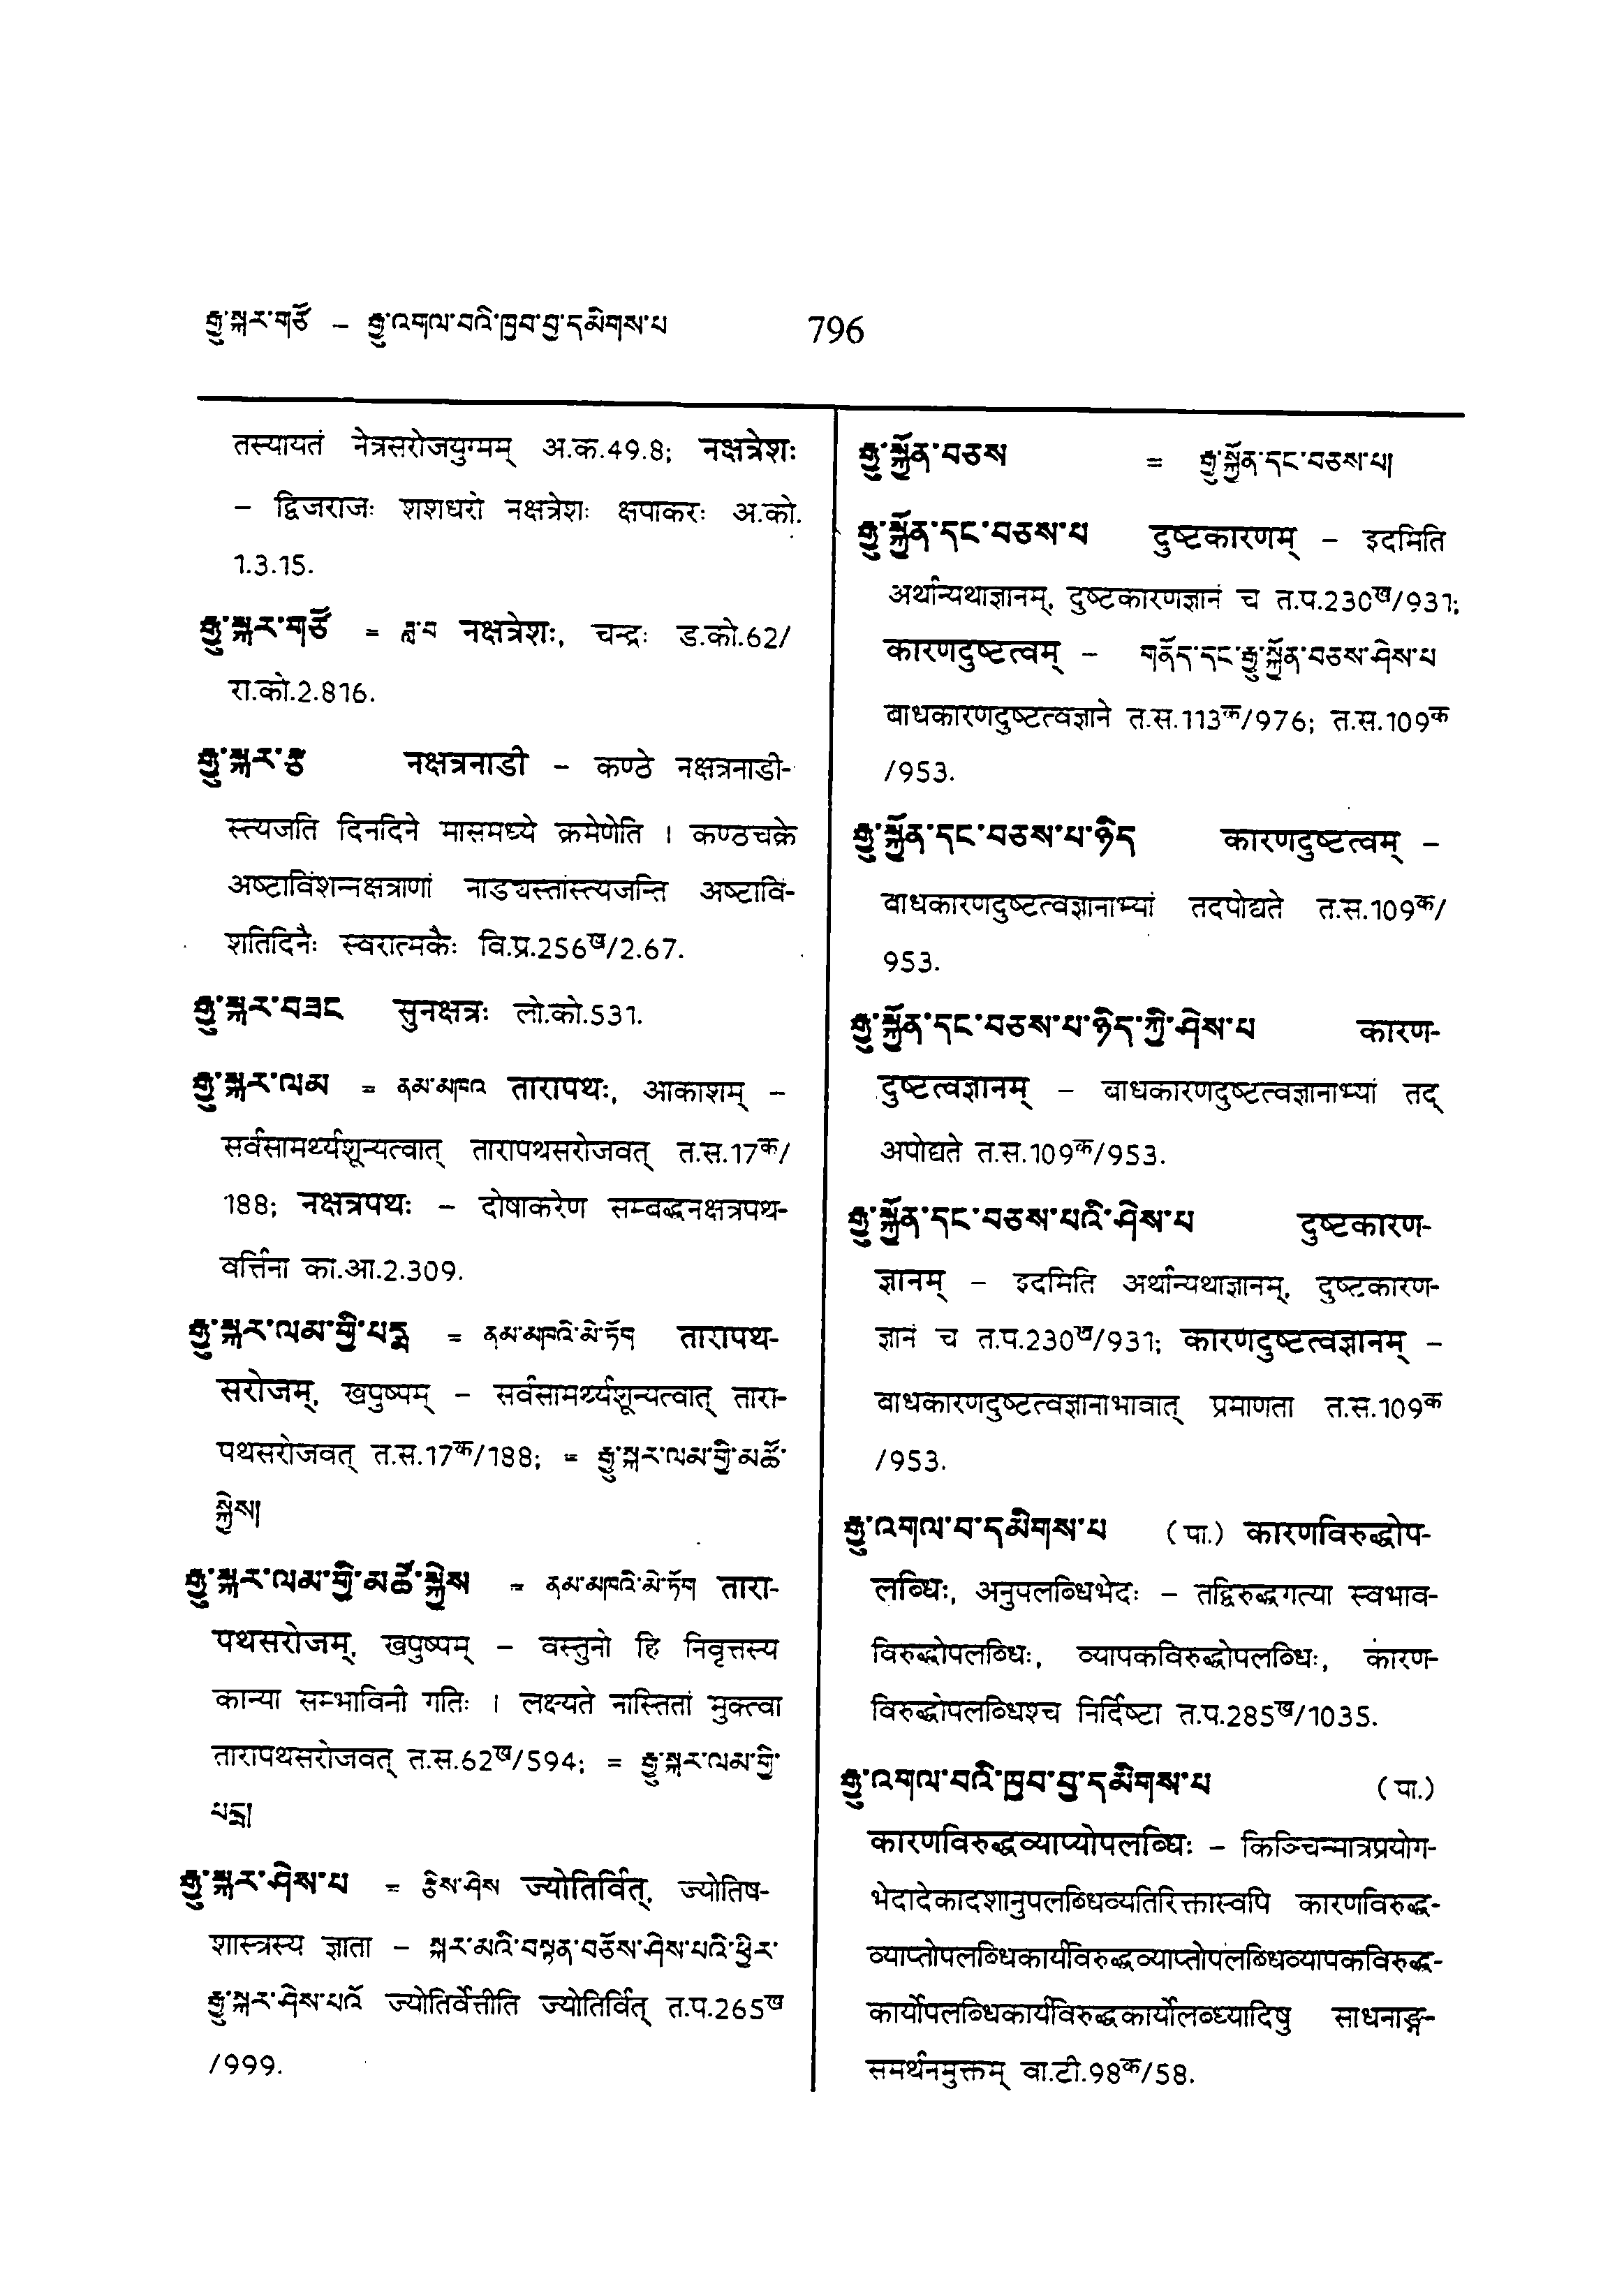 རྒྱུ་སྐར་གཙོ – རྒྱུ་འགལ་བའི་ཁྱབ་བྱ་དམིགས་པ 796
तस्यायतं नेत्रसरोजयुग्मम् अ.क.49.8; नक्षत्रेशः
– द्विजराजः शशधरो नक्षत्रेशः क्षपाकरः अ.को.
1.3.15.
རྒྱུ་སྐར་གཙོ = ཟླ་བ नक्षत्रेशः, चन्द्रः ङ.को.62/
रा.को.2.816.
རྒྱུ་སྐར་རྩ नक्षत्रनाडी – कण्ठे नक्षत्रनाडी-
स्त्यजति दिनदिने मासमध्ये क्रमेणेति । कण्ठचक्रे
अष्टाविंशन्नक्षत्राणां नाड्यस्तांस्त्यजन्ति अष्टाविं-
शतिदिनैः स्वरात्मकैः वि.प्र.256ख/2.67.
རྒྱུ་སྐར་བཟང सुनक्षत्रः लो.को.531.
རྒྱུ་སྐར་ལམ = ནམ་མཁའ तारापथः, आकाशम् –
सर्वसामर्थ्यशून्यत्वात् तारापथसरोजवत् त.स.17क/
188; नक्षत्रपथः – दोषाकरेण सम्बद्धनक्षत्रपथ-
वर्त्तिना का.आ.2.309.
རྒྱུ་སྐར་ལམ་གྱི་པདྨ = ནམ་མཁའི་མེ་ཏོག तारापथ-
सरोजम्, खपुष्पम् – सर्वसामर्थ्यशून्यत्वात् तारा-
पथसरोजवत् त.स.17क/188; = རྒྱུ་སྐར་ལམ་གྱི་མཚོ་
སྐྱེས།
རྒྱུ་སྐར་ལམ་གྱི་མཚོ་སྐྱེས = ནམ་མཁའི་མེ་ཏོག तारा-
पथसरोजम्, खपुष्पम् – वस्तुनो हि निवृत्तस्य
कान्या सम्भाविनी गतिः । लक्ष्यते नास्तितां मुक्त्वा
तारापथसरोजवत् त.स.62ख/594; = རྒྱུ་སྐར་ལམ་གྱི་
པདྨ།
རྒྱུ་སྐར་ཤེས་པ = རྩིས་ཤེས ज्योतिर्वित्, ज्योतिष-
शास्त्रस्य ज्ञाता – སྐར་མའི་བསྟན་བཅོས་ཤེས་པའི་ཕྱིར་
རྒྱུ་སྐར་ཤེས་པའོ ज्योतिर्वेत्तीति ज्योतिर्वित् त.प.265ख
/999.
རྒྱུ་སྐྱོན་བཅས = རྒྱུ་སྐྱོན་དང་བཅས་པ།
རྒྱུ་སྐྱོན་དང་བཅས་པ दुष्टकारणम् – इदमिति
अर्थान्यथाज्ञानम्, दुष्टकारणज्ञानं च त.प.230ख/931;
कारणदुष्टत्वम् – གནོད་དང་རྒྱུ་སྐྱོན་བཅས་ཤེས་པ
बाधकारणदुष्टत्वज्ञाने त.स.113क/976; त.स.109क
/953.
རྒྱུ་སྐྱོན་དང་བཅས་པ་ཉིད कारणदुष्टत्वम् –
बाधकारणदुष्टत्वज्ञानाभ्यां तदपोद्यते त.स.109क/
953.
རྒྱུ་སྐྱོན་དང་བཅས་པ་ཉིད་ཀྱི་ཤེས་པ कारण-
दुष्टत्वज्ञानम् – बाधकारणदुष्टत्वज्ञानाभ्यां तद्
अपोद्यते त.स.109क/953.
རྒྱུ་སྐྱོན་དང་བཅས་པའི་ཤེས་པ दुष्टकारण-
ज्ञानम् – इदमिति अर्थान्यथाज्ञानम्, दुष्टकारण-
ज्ञानं च त.प.230ख/931; कारणदुष्टत्वज्ञानम् –
बाधकारणदुष्टत्वज्ञानाभावात् प्रमाणता त.स.109क
/953.
རྒྱུ་འགལ་བ་དམིགས་པ (पा.) कारणविरुद्धोप-
लब्धिः, अनुपलब्धिभेदः – तद्विरुद्धगत्या स्वभाव-
विरुद्धोपलब्धिः, व्यापकविरुद्धोपलब्धिः, कारण-
विरुद्धोपलब्धिश्च निर्दिष्टा त.प.285ख/1035.
རྒྱུ་འགལ་བའི་ཁྱབ་བྱ་དམིགས་པ (पा.)
कारणविरुद्धव्याप्योपलब्धिः – किञ्चिन्मात्रप्रयोग-
भेदादेकादशानुपलब्धिव्यतिरिक्तास्वपि कारणविरुद्ध-
व्याप्तोपलब्धिकार्यविरुद्धव्याप्तोपलब्धिव्यापकविरुद्ध-
कार्योपलब्धिकार्यविरुद्धकार्योलब्ध्यादिषु साधनाङ्ग-
समर्थनमुक्तम् वा.टी.98क/58.